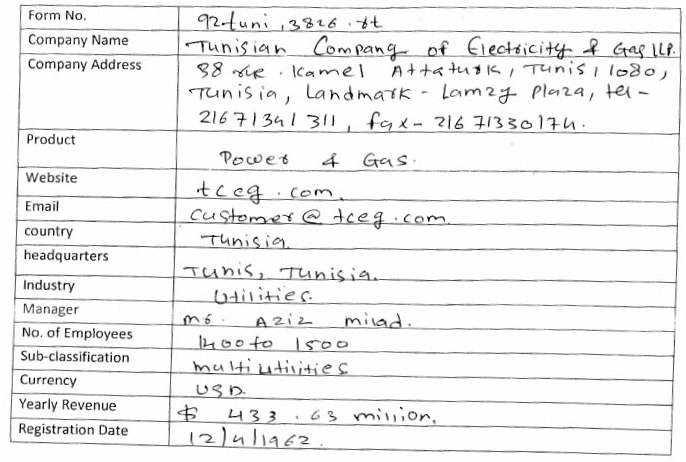 Form No. 92tuni,3826.rt
Company Name Tunisian Company of Electricity & Gas LLP.
Company Address 38 rue. Kamel Attaturk, Tunis, 1080,
Tunisia, Landmark - Lamzy Plaza, tel-
21671341311, fax- 21671330174.
Product Power & Gas.
Website tceg.com.
Email customer@tceg.com.
country Tunisia.
headquarters Tunis, Tunisia.
Industry Utilities.
Manager Ms. Aziz milad.
No. of Employees 1400 to 1500
Sub-classification multiutilities
Currency USD.
Yearly Revenue $ 433.63 million.
Registration Date 12/4/1962.